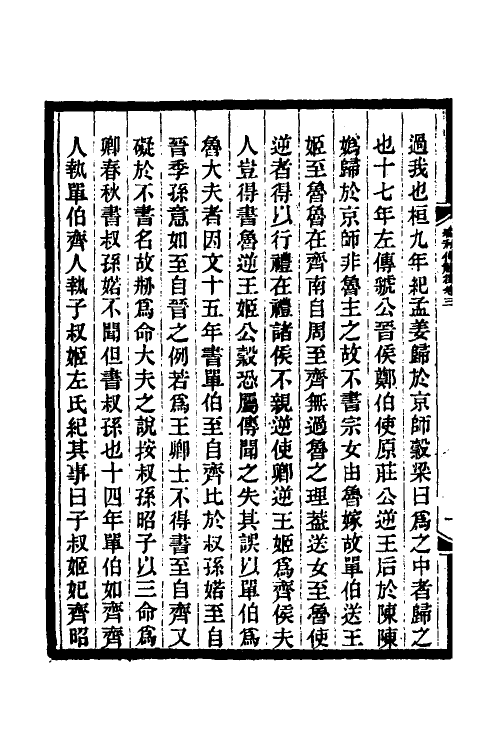 過我也桓九年紀孟姜歸於京師穀梁曰爲之中者歸之
也十七年左傳虢公晉侯鄭伯使原莊公逆王后於陳陳
媯歸於京師非魯主之故不書宗女由魯嫁故單伯送王
姬至魯魯在齊南自周至齊無過魯之理葢送女至魯使
逆者得以行禮在禮諸侯不親逆使卿逆王姬爲齊侯夫
人豈得書魯逆王姬公穀恐屬傳聞之失其誤以單伯爲
魯大夫者因文十五年書單伯至自齊比於叔孫婼至自
晉季孫意如至自晉之例若爲王卿士不得書至自齊又
礙於不書名故刱爲命大夫之說按叔孫昭子以三命爲
卿春秋書叔孫婼不聞但書叔孫也十四年單伯如齊齊
人執單伯齊人執子叔姬左氏紀其事曰子叔姬妃齊昭